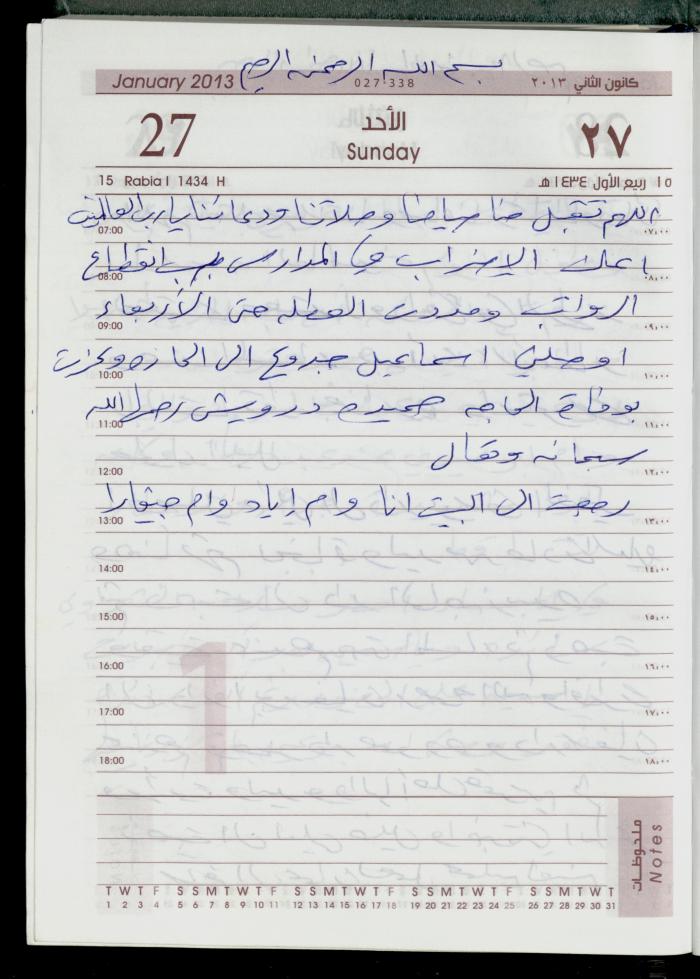 بسم الله الرحمن الرحيم
January 2013 027-338 كانون الثاني ٢٠١٣
27 الأحد ٢٧
Sunday
15 Rabia I 1434 H ١٥ ربيع الأول ١٤٣٤ هـ
اللهم تقبل منا صيامنا وصلاتنا ودعائنا يا رب العالمين
07:00 ٠٧:٠٠
اعلن الإضراب في المدارس بسبب انقطاع
08:00 ٠٨:٠٠
الرواتب ومددت العطله حتى الأربعاء
09:00 ٠٩:٠٠
اوصلني اسماعيل جدوع الى الحاره وعزيت
10:00 ١٠:٠٠
بوفاة الحاجه حميده درويش رحمها الله
11:00 ١١:٠٠
سبحانه وتعالى
12:00 ١٢:٠٠
رجعت الى البيت انا وام إياد وام جيفارا
13:00 ١٣:٠٠
14:00 ١٤:٠٠
15:00 ١٥:٠٠
16:00 ١٦:٠٠
17:00 ١٧:٠٠
18:00 ١٨:٠٠
1
ملحوظات
Notes
T W T F S S M T W T F S S M T W T F S S M T W T F S S M T W T
1 2 3 4 5 6 7 8 9 10 11 12 13 14 15 16 17 18 19 20 21 22 23 24 25 26 27 28 29 30 31